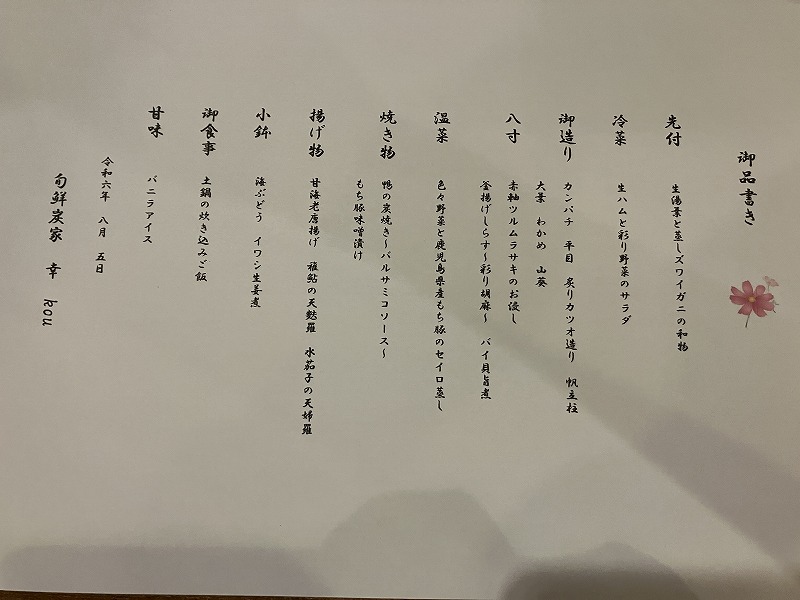 御品書き
先付
生湯葉と蒸しズワイガニの和物
冷菜
生ハムと彩り野菜のサラダ
御造り
カンパチ 平目 炙りカツオ造り 帆立柱
大葉 わかめ 山葵
八寸
赤軸ツルムラサキのお浸し
釜揚げしらす～彩り胡麻～ バイ貝旨煮
温菜
色々野菜と鹿児島県産もち豚のセイロ蒸し
焼き物
鴨の炭焼き～バルサミコソース～
もち豚味噌漬け
揚げ物
甘海老唐揚げ 稚鮎の天麩羅 水茄子の天婦羅
小鉢
海ぶどう イワシ生姜煮
御食事
土鍋の炊き込みご飯
甘味
バニラアイス
令和六年 八月 五日
旬鮮炭家 幸 kou